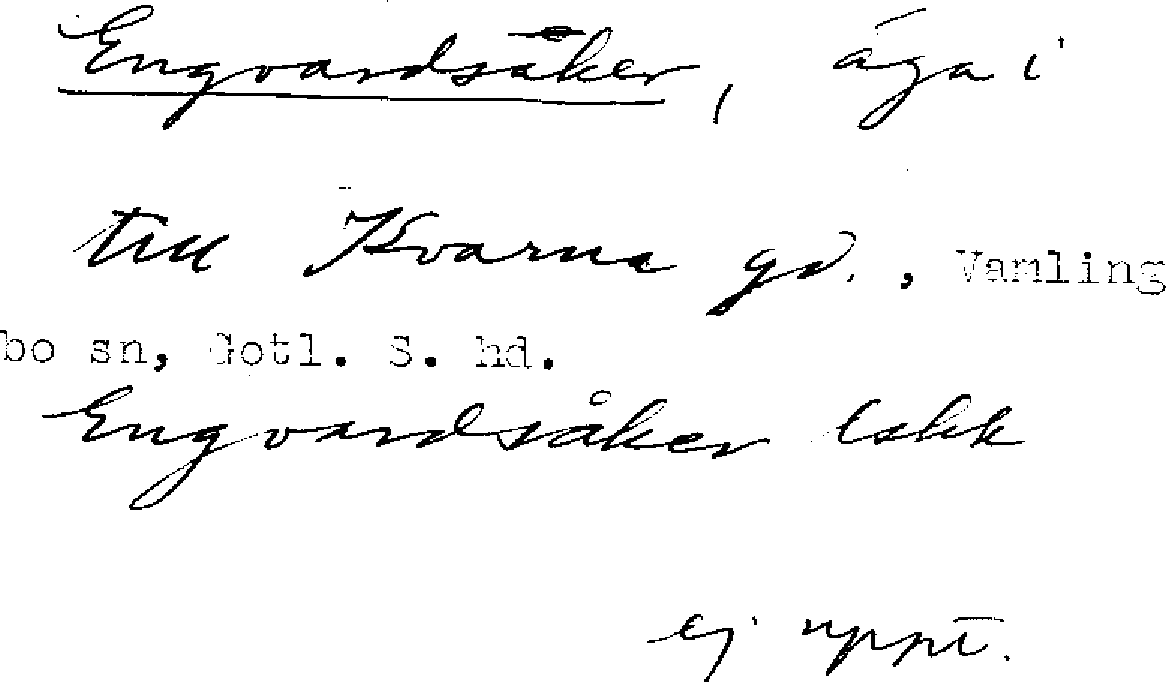 Engvardsåker, äga i
till Kvarna gd., Vamling
bo sn, Gotl. S. hd.
Engvardsåker Lskk
ej uppt.